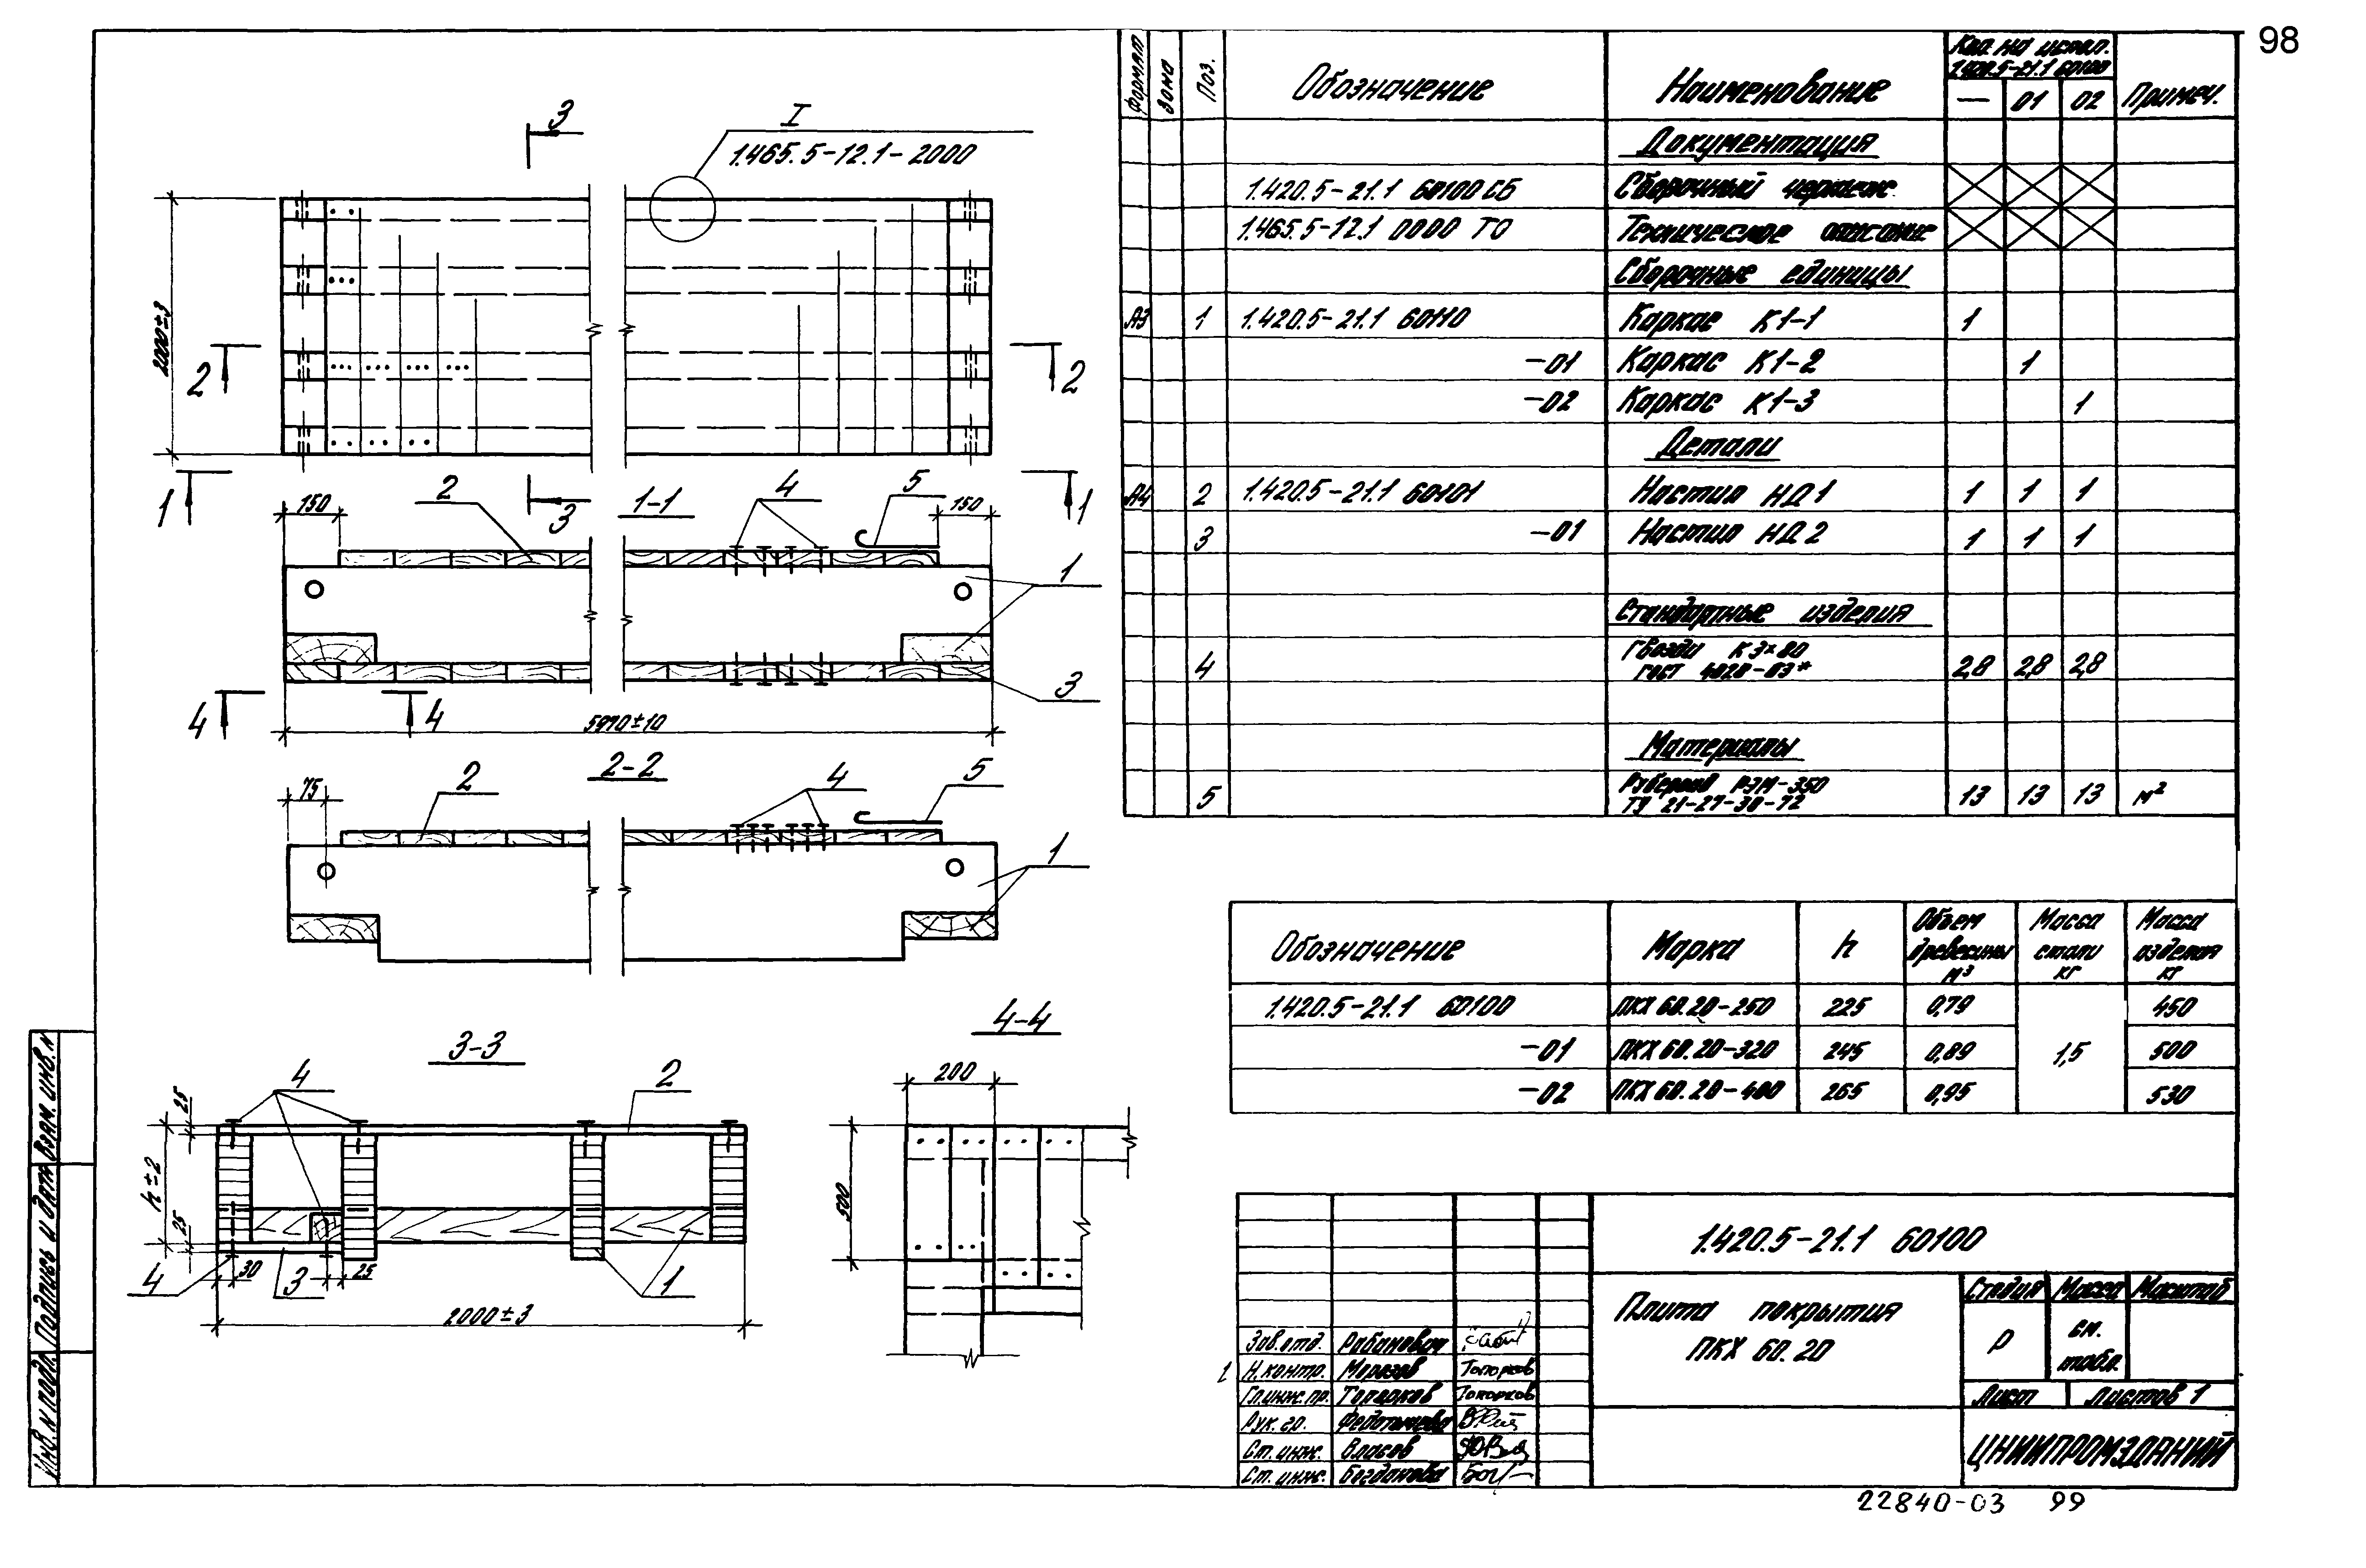 98
3
I
1.465.5-12.1-2000
2000±3
2
2
1
1
3
150
2
1-1
4
5
150
1
3
4
4
5970±10
2-2
75
2
4
5
1
3-3
4
2
25
h±2
25
4
30
3
25
1
2000±3
4-4
200
500
Формат
Зона
Поз.
Обозначение
Наименование
Кол. на испол.
1.420.5-21.1 60100
— 01 02
Примеч.
Документация
1.420.5-21.1 60100 СБ Сборочный чертеж
1.465.5-12.1 0000 ТО Техническое описание
Сборочные единицы
А3 1 1.420.5-21.1 60110 Каркас К1-1 1
-01 Каркас К1-2 1
-02 Каркас К1-3 1
Детали
А4 2 1.420.5-21.1 60101 Настил НД1 1 1 1
3 -01 Настил НД2 1 1 1
Стандартные изделия
Гвозди К 3×80
4 ГОСТ 4028-63* 2,8 2,8 2,8
Материалы
Рубероид РЭМ-350
5 ТУ 21-27-30-72 13 13 13 м²
Обозначение Марка h Объем древесины м³ Масса стали кг Масса изделия кг
1.420.5-21.1 60100 ПКХ 60.20-250 225 0,79 450
-01 ПКХ 60.20-320 245 0,89 1,5 500
-02 ПКХ 60.20-400 265 0,95 530
1.420.5-21.1 60100
Плита покрытия
ПКХ 60.20
Стадия Масса Масштаб
Р см. табл.
Лист Листов 1
ЦНИИПРОМЗДАНИЙ
Зав.отд. Рабинович
Н.контр. Морозов Топорков
Гл.инж.пр. Топорков Топорков
Рук.гр.
Ст.инж. Власов
Ст.инж. Богданова
Инв.N подл.
Подпись и дата
Взам. инв.N
22840-03 99